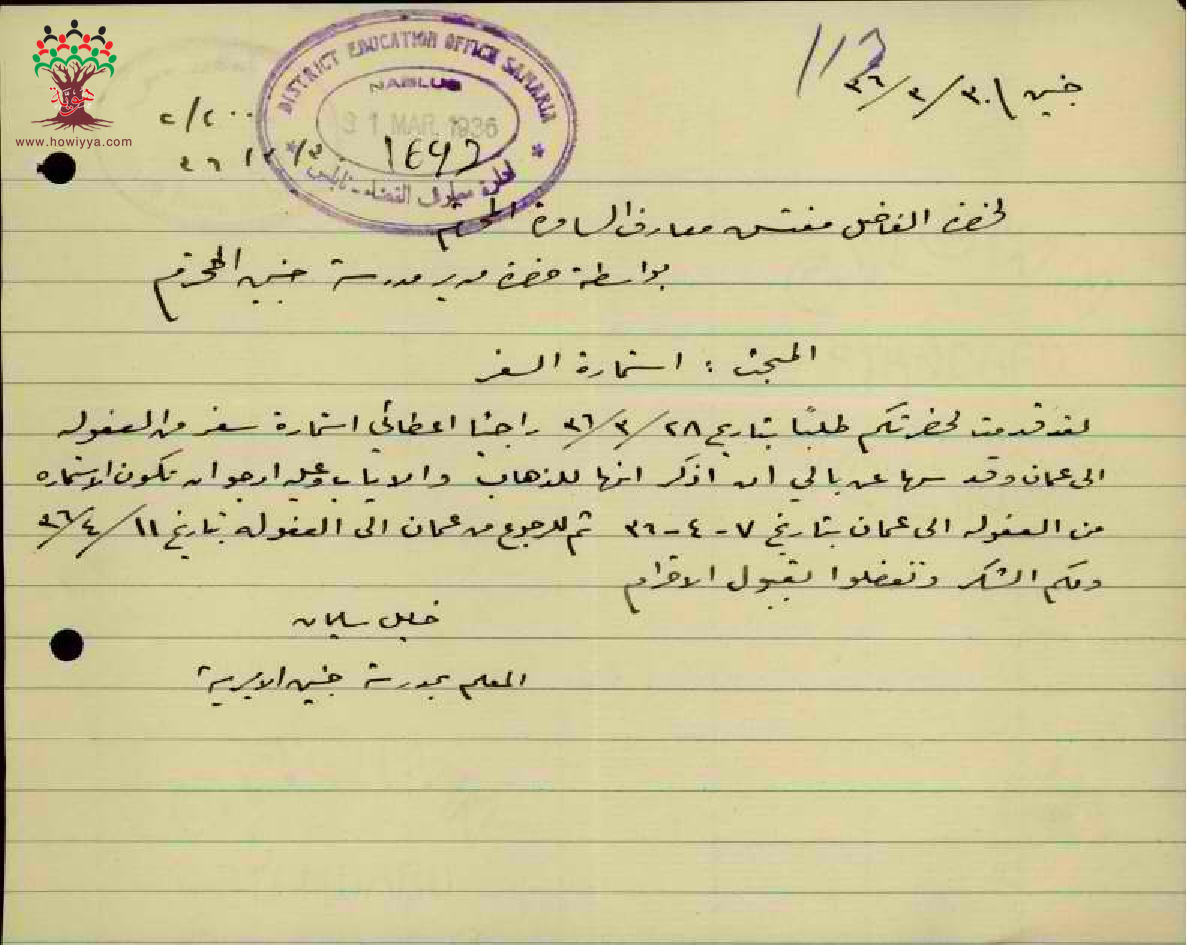 جنين ٣٠/٣/٣٦
DISTRICT EDUCATION OFFICE SAMARIA
NABLUS
31 MAR 1936
ادارة معارف القضاء - نابلس
www.howiyya.com
لحضرة الفاضل مفتش معارف السامرة المحترم
بواسطة حضرة مدير مدرسة جنين المحترم
المبحث : استمارة السفر
لقد قدمت لحضرتكم طلبًا بتاريخ ٢٨/٣/٣٦ راجيًا اعطائي استمارة سفر من العفوله
الى عمان وقد سها عن بالي ان اذكر انها للذهاب والاياب وعليه ارجو ان تكون الاستماره
من العفوله الى عمان بتاريخ ٧-٤-٣٦ ثم للرجوع من عمان الى العفوله بتاريخ ١١/٤/٣٦
ولكم الشكر وتفضلوا بقبول الاحترام
خليل سليمان
المعلم بمدرسة جنين الاميرية